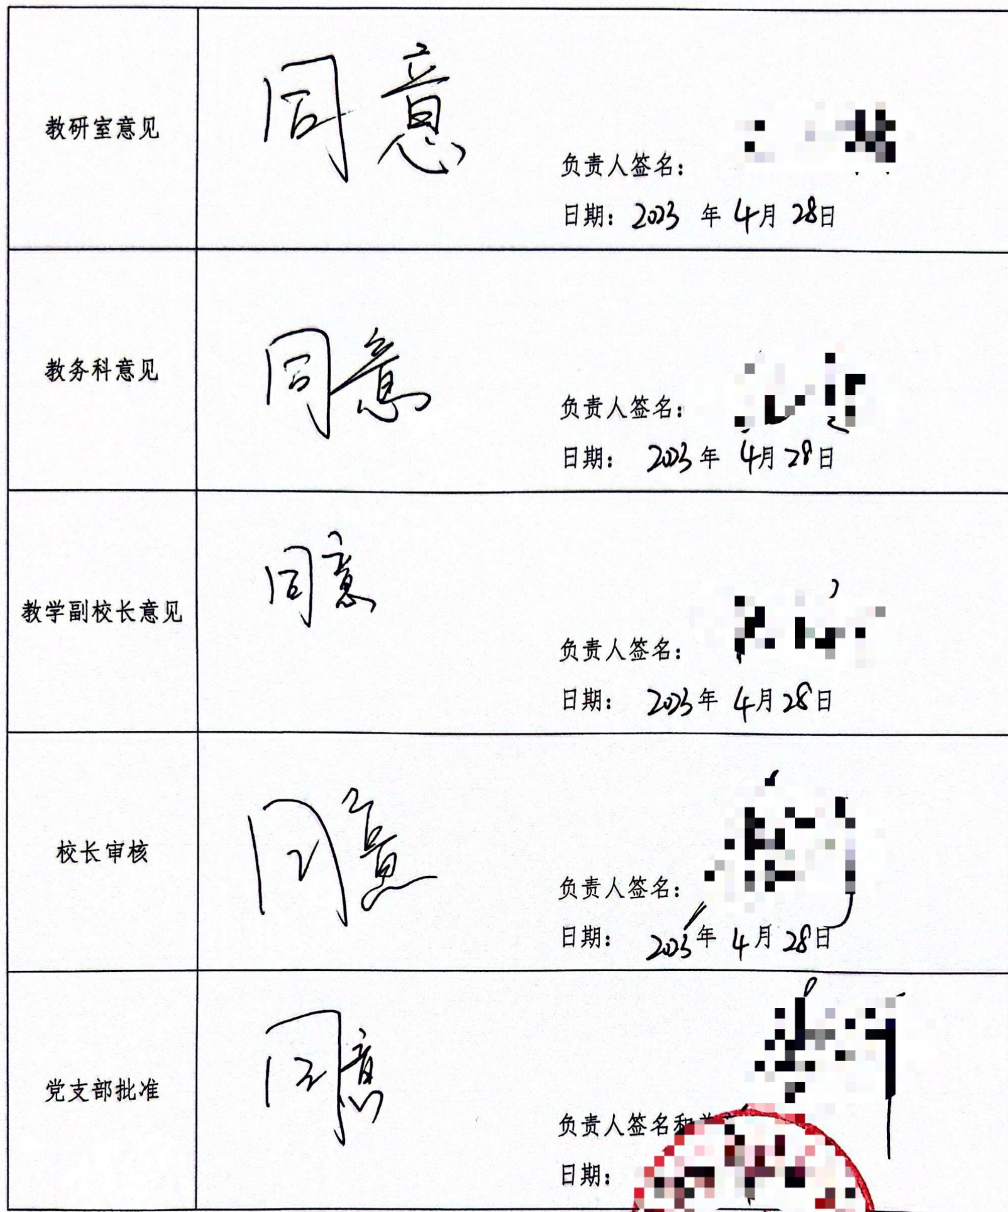 教研室意见
同意
负责人签名:
日期: 2023 年 4月 28日
教务科意见
同意
负责人签名:
日期: 2023年 4月 28日
教学副校长意见
同意
负责人签名:
日期: 2023年 4月 28日
校长审核
同意
负责人签名:
日期: 2023年 4月 28日
党支部批准
同意
负责人签名和
日期: